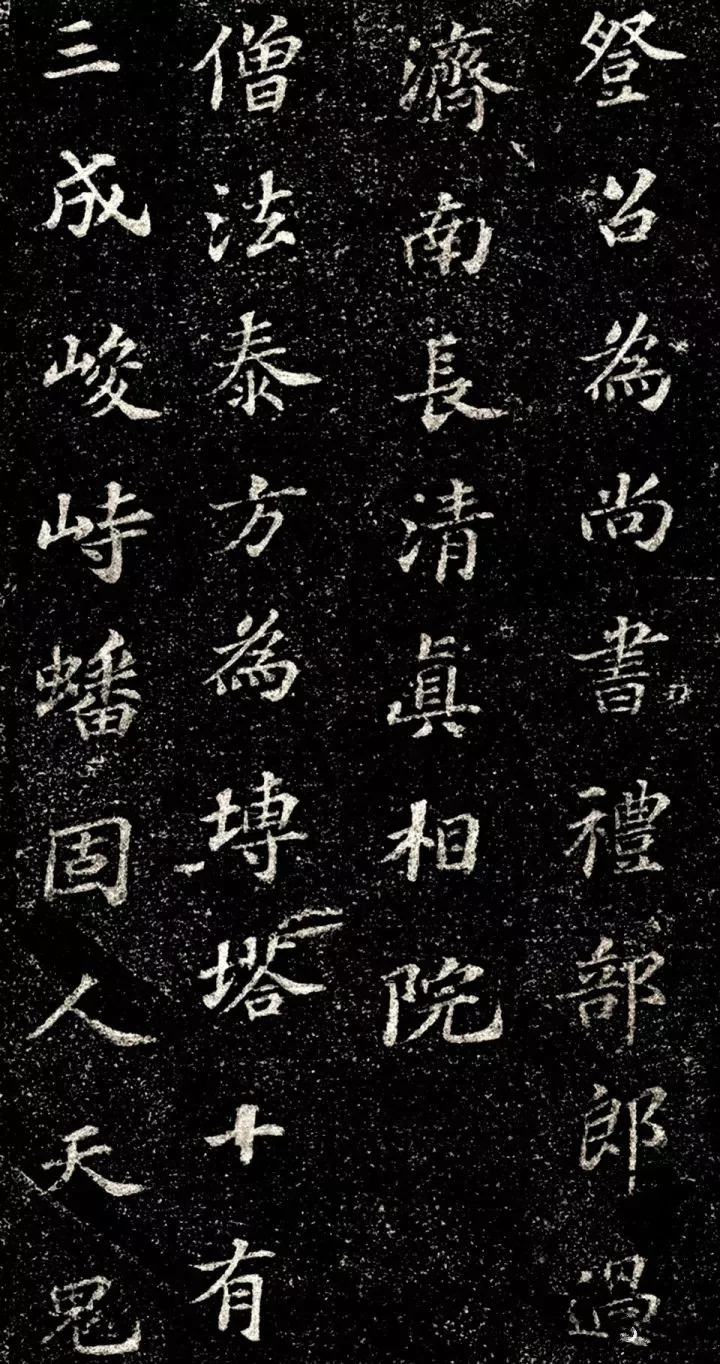 登召為尚書禮部郎過
濟南長清真相院
僧法泰方為塼塔十有
三成峻峙蟠固人天鬼